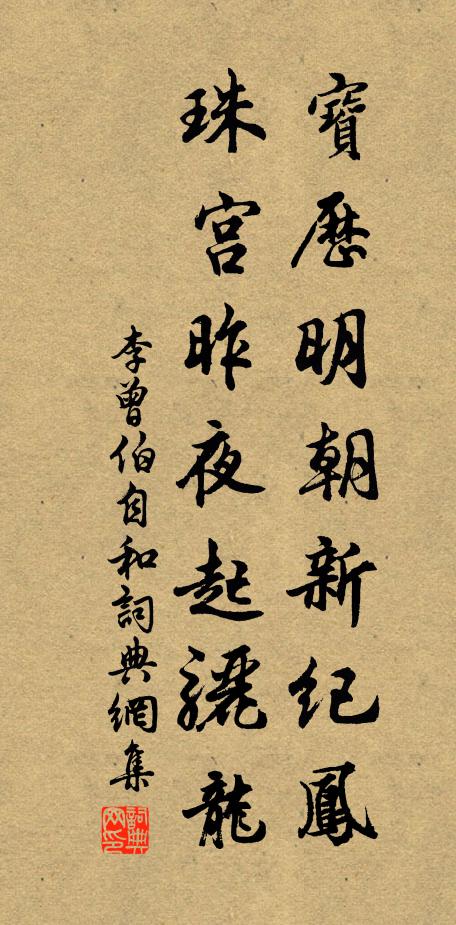 寶歷明朝新纪鳳
珠宫昨夜起驪龍
李曾伯自和詞典網集
詞典網印